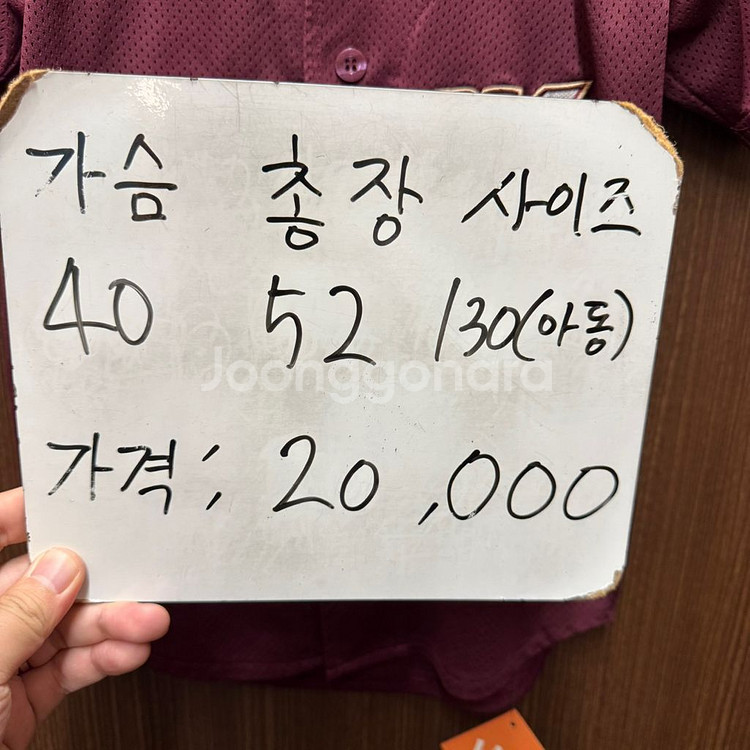 가슴 총장 사이즈
40 52 130(아동)
Joonggonara
가격; 20,000